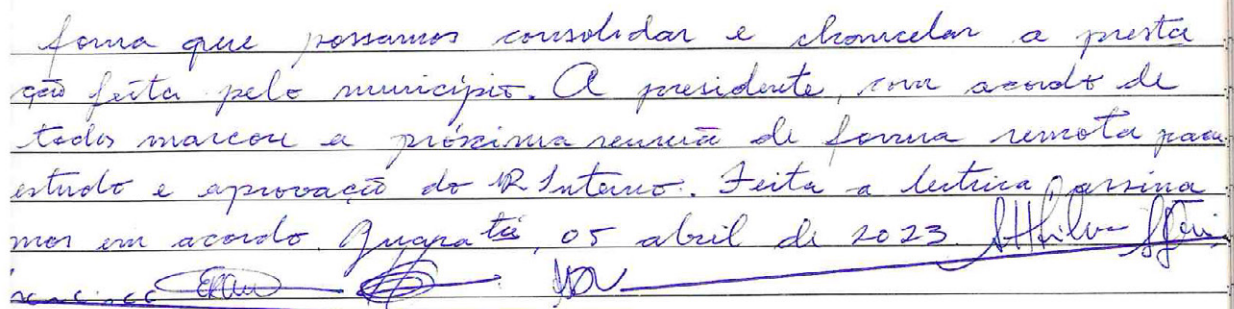 forma que possamos consolidar e chancelar a presta
ção feita pelo município. A presidente, com acordo de
todos marcou a próxima reunião de forma remota para
estudo e aprovação do R Interno. Feita a leitura assina
mos em acordo. Guaratã, 05 abril de 2023.